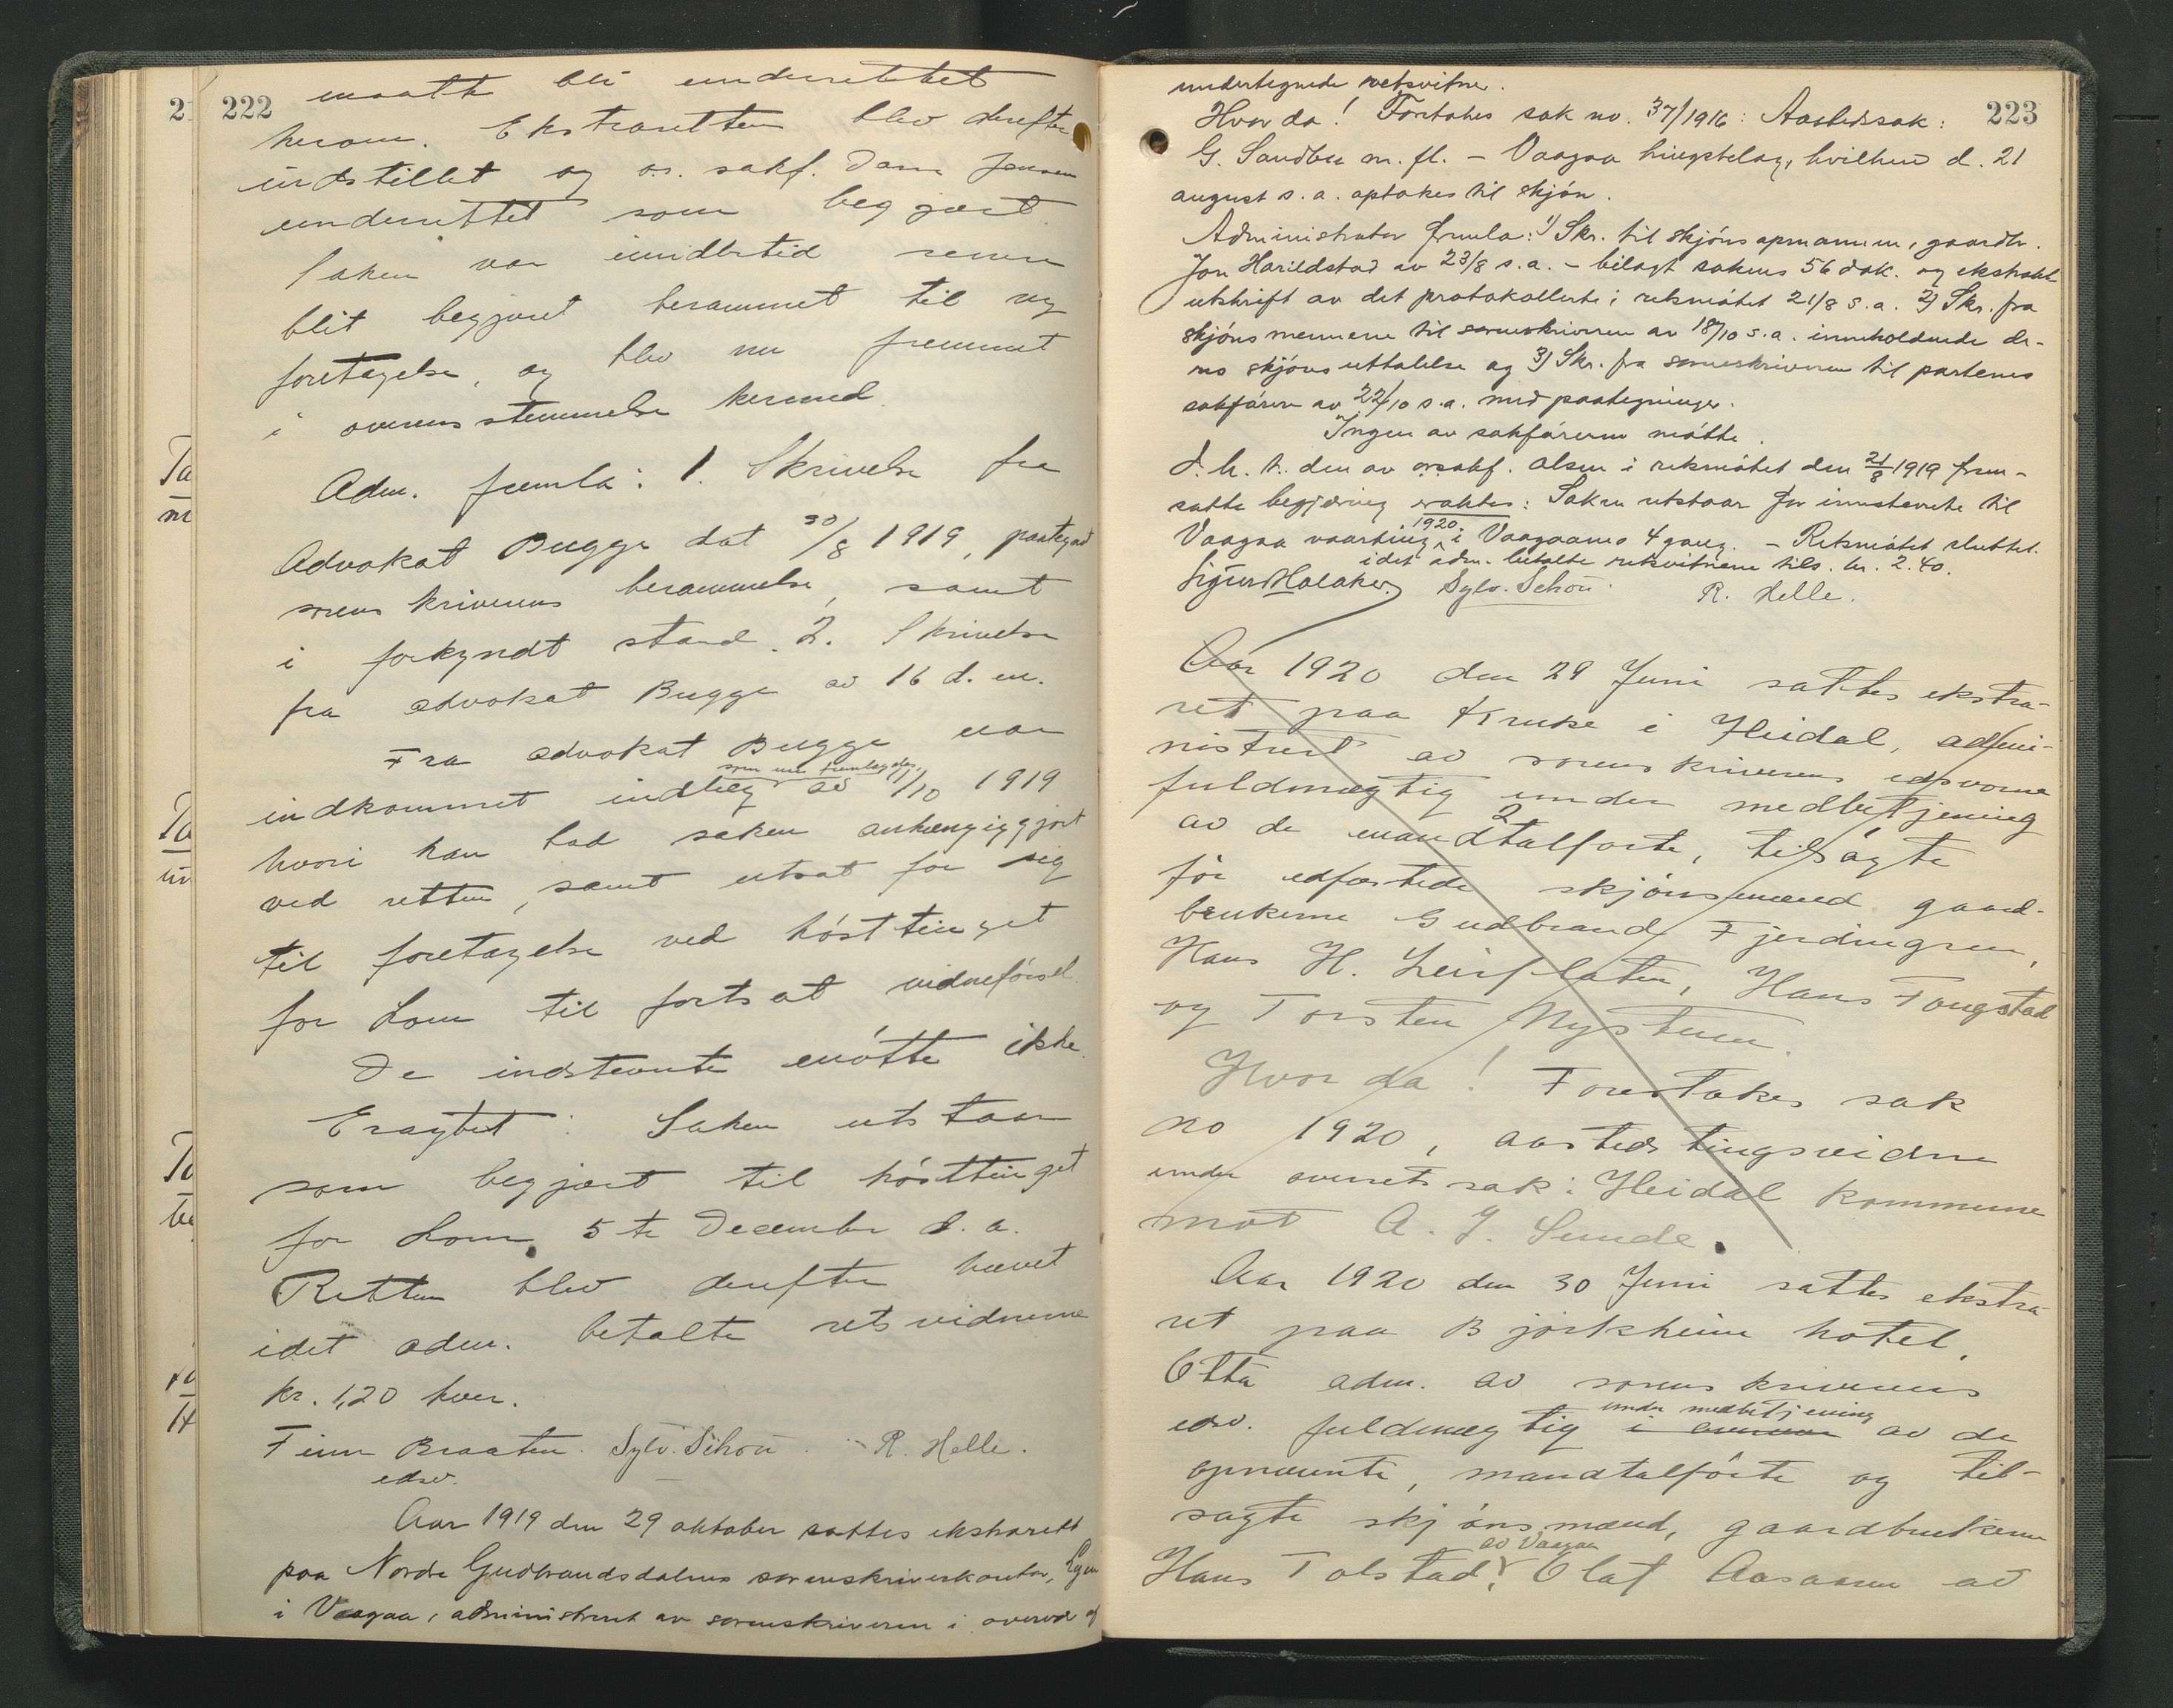 222
maatte bli underrettet
herom. Ekstraretten blev derefter
indstillet og o.r. sakf. Dann Jensen
underrettet som begjært.
Saken var imidlertid senere
blit begjæret berammet til ny
foretagelse, og blev nu fremmet
i overensstemmelse hermed.
Adm. fremla: 1. Skrivelse fra
Advokat Bugge dat 30/8 1919, paategnet
sorenskriverens berammelse, samt
i forkyndt stand. 2. Skrivelse
fra advokat Bugge av 16 d. m.
Fra advokat Bugge var
som nu fremlagdes,
indkommet indlæg av 1/10 1919
hvori han bad saken anhængiggjort
ved retten, samt utsat for sig
til foretagelse ved høsttinget
for Lom til fortsat vidneførsel.
De indstevnte møtte ikke.
Eragtet: Saken utstaar
som begjært til høsttinget
for Lom 5te December d. a.
Retten blev derefter hævet
idet adm. betalte retsvidnerne
kr. 1,20 hver.
Finn Braaten. Sylv. Schou. R. Helle.
edsv.
Aar 1919 den 29 oktober sattes ekstrarett
paa Nordre Gudbrandsdalens sorenskriverkontor,
i Vaagaa, administrert av sorenskriveren i overvær av
223
undertegnede retsvitner.
Hvor da! Foretokes sak no. 37/1916: Aastedssak:
G. Sandbu m. fl. – Vaagaa tingstelag, hvilken d. 21
august s. a. optokes til skjøn.
Administrator fremla: 1) Skr. til skjønsopmannen, gaardbr.
Jon Harildstad av 23/8 s. a. – bilagt sakens 56 dok. og ekstrakt
utskrift av det protokollerte i retsmøtet 21/8 s. a. 2) Skr. fra
skjønsmennene til sorenskriveren av 18/10 s. a. inneholdende de-
res skjønsuttalelse og 3) Skr. fra sorenskriveren til partenes
sakførere av 22/10 s. a. med paategninger.
Ingen av sakførerne møtte.
I. h. t. den av orsakf. Olsen i retsmøtet den 21/8 1919 frem-
satte begjæring eraktes: Saken utstaar for innstevnte til
1920
Vaagaa vaarting i Vaagaamo 4 gang. – Retsmøtet sluttet.
idet adm. betalte retsvitnene tils. kr. 2.40.
Sigurd Holaker. Sylv. Schou. R. Helle.
Aar 1920 den 29 Juni sattes ekstra-
ret paa Kruke i Heidal, admi-
nistrert av sorenskriverens edsvorne
fuldmægtig under medbetjening
2
av de mandtalførte, tilsagte
før edfæstede skjønsmænd gaard-
brukerne Gudbrand Fjerdingren,
Hans H. Leirflaten, Hans Tongstad
og Torsten Nystuen.
Hvor da! Foretokes sak
no 1920, aastedstingsvidne
under overretssak: Heidal kommune
mot A. J. Sunde.
Aar 1920 den 30 Juni sattes ekstra
ret paa Bjørkheim hotel,
Otta adm. av sorenskriverens
under medbetjening
edsv. fuldmægtig i av de
opnævnte, mandtalførte og til-
sagte skjønsmænd, gaardbrukerne
av Vaagaa
Hans Tolstad, Olaf Aasaaren av